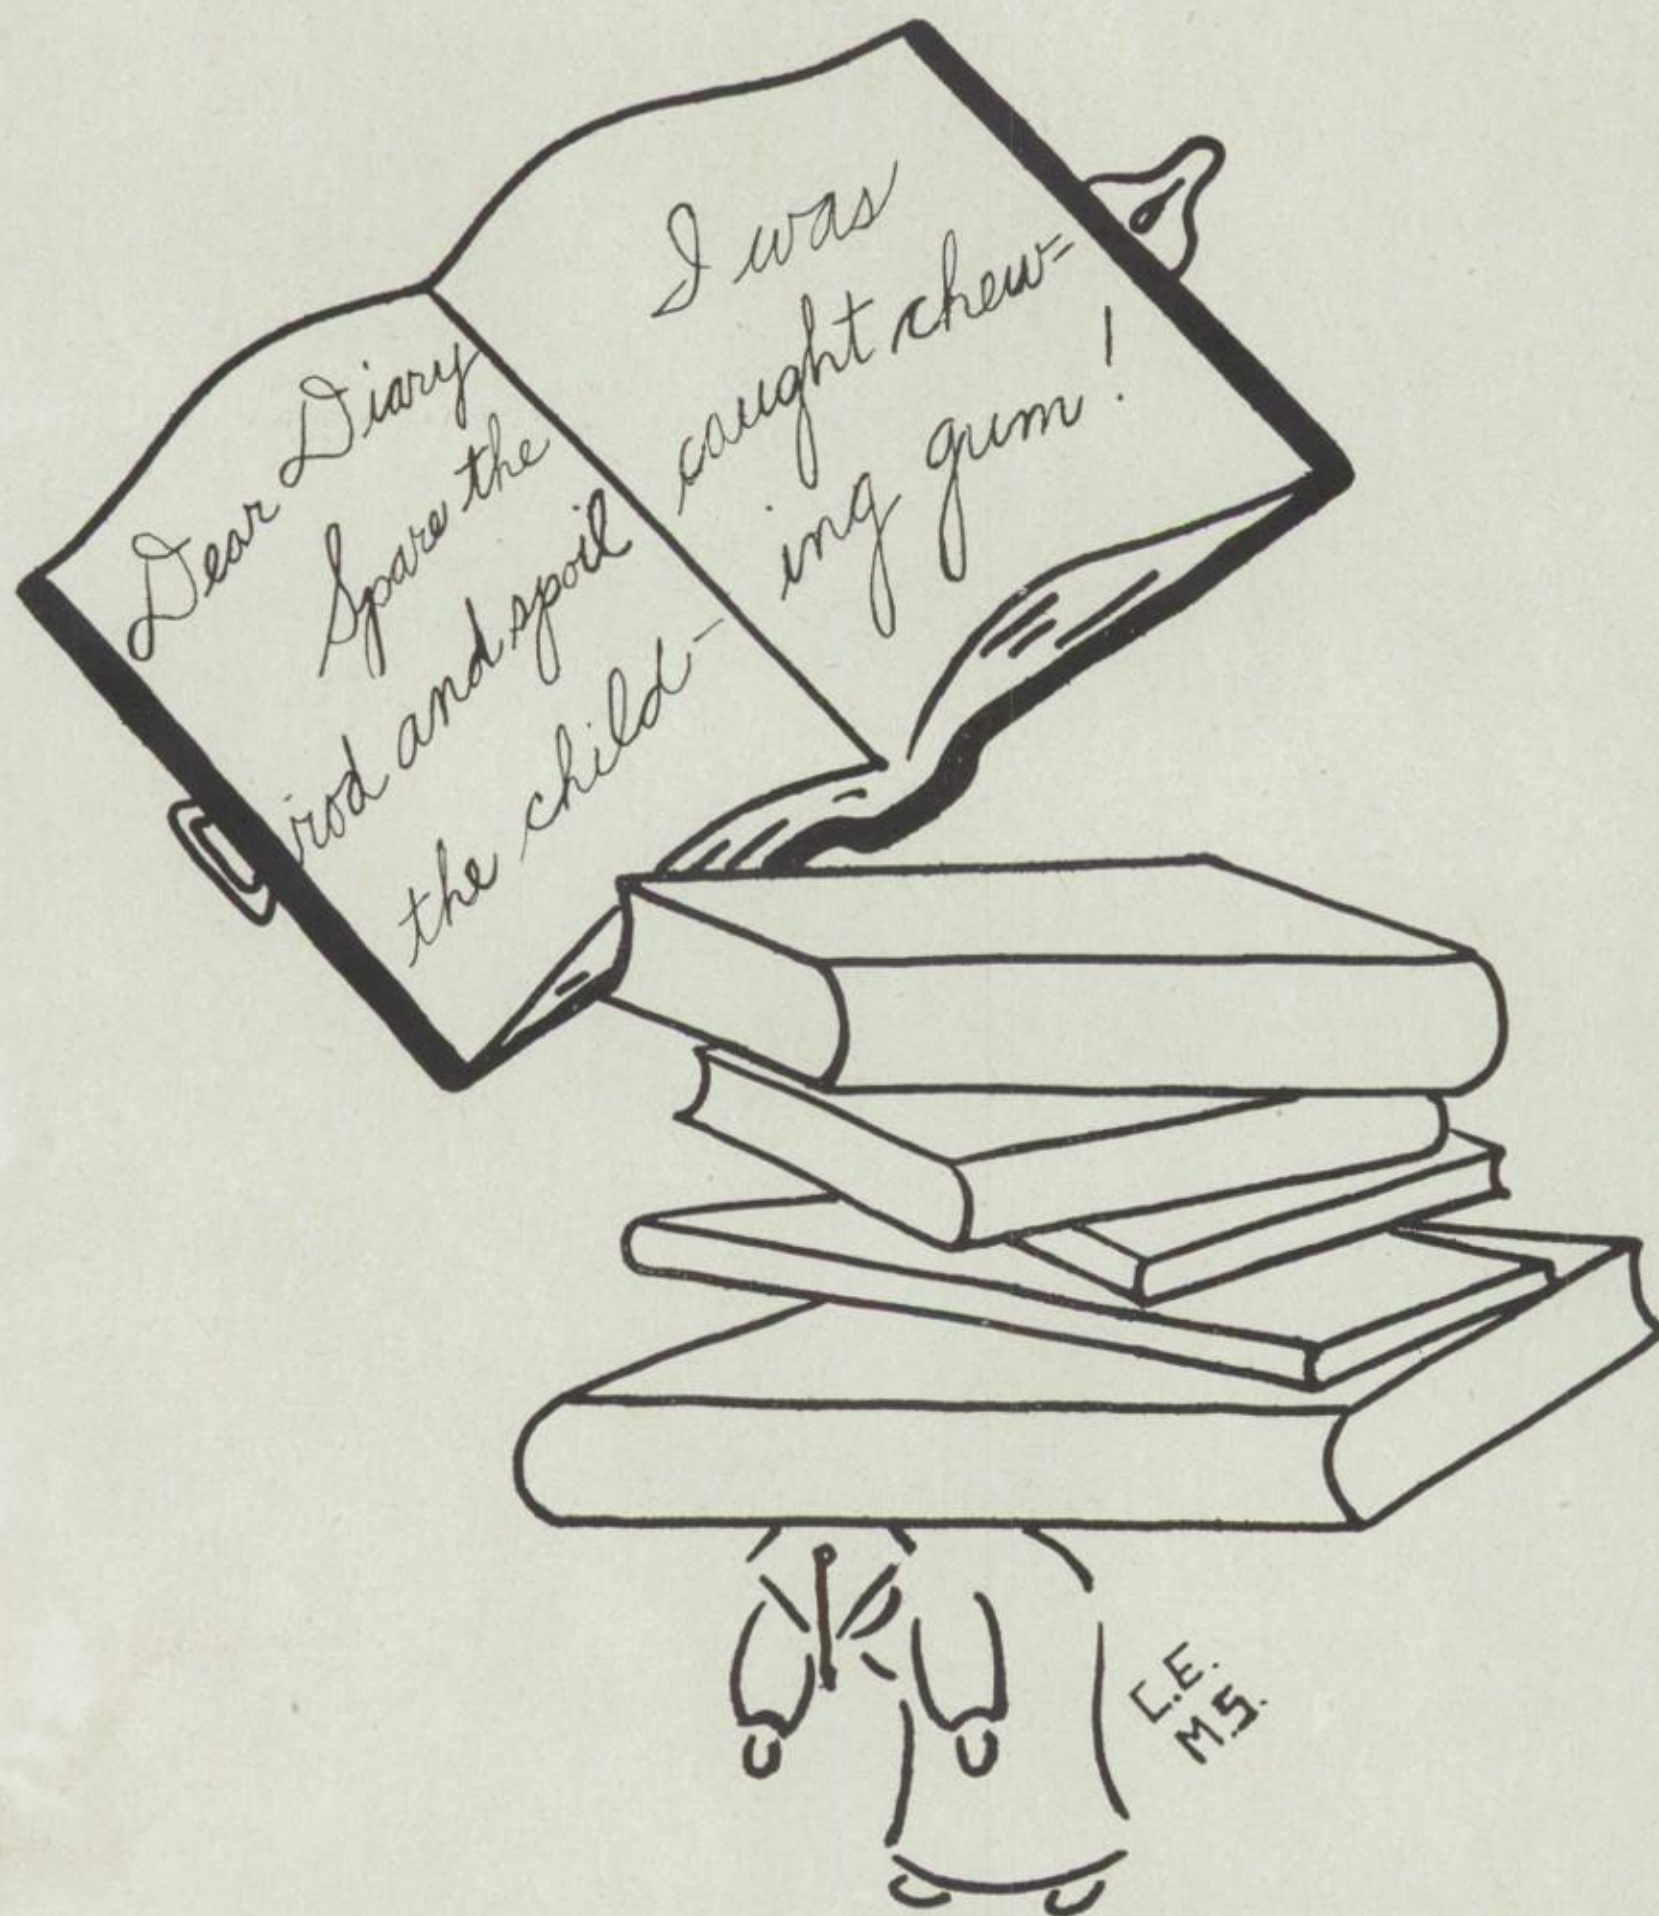 Dear Diary
Spare the
rod and spoil
the child-
I was
caught chew=
ing gum!
C.E.
M.S.